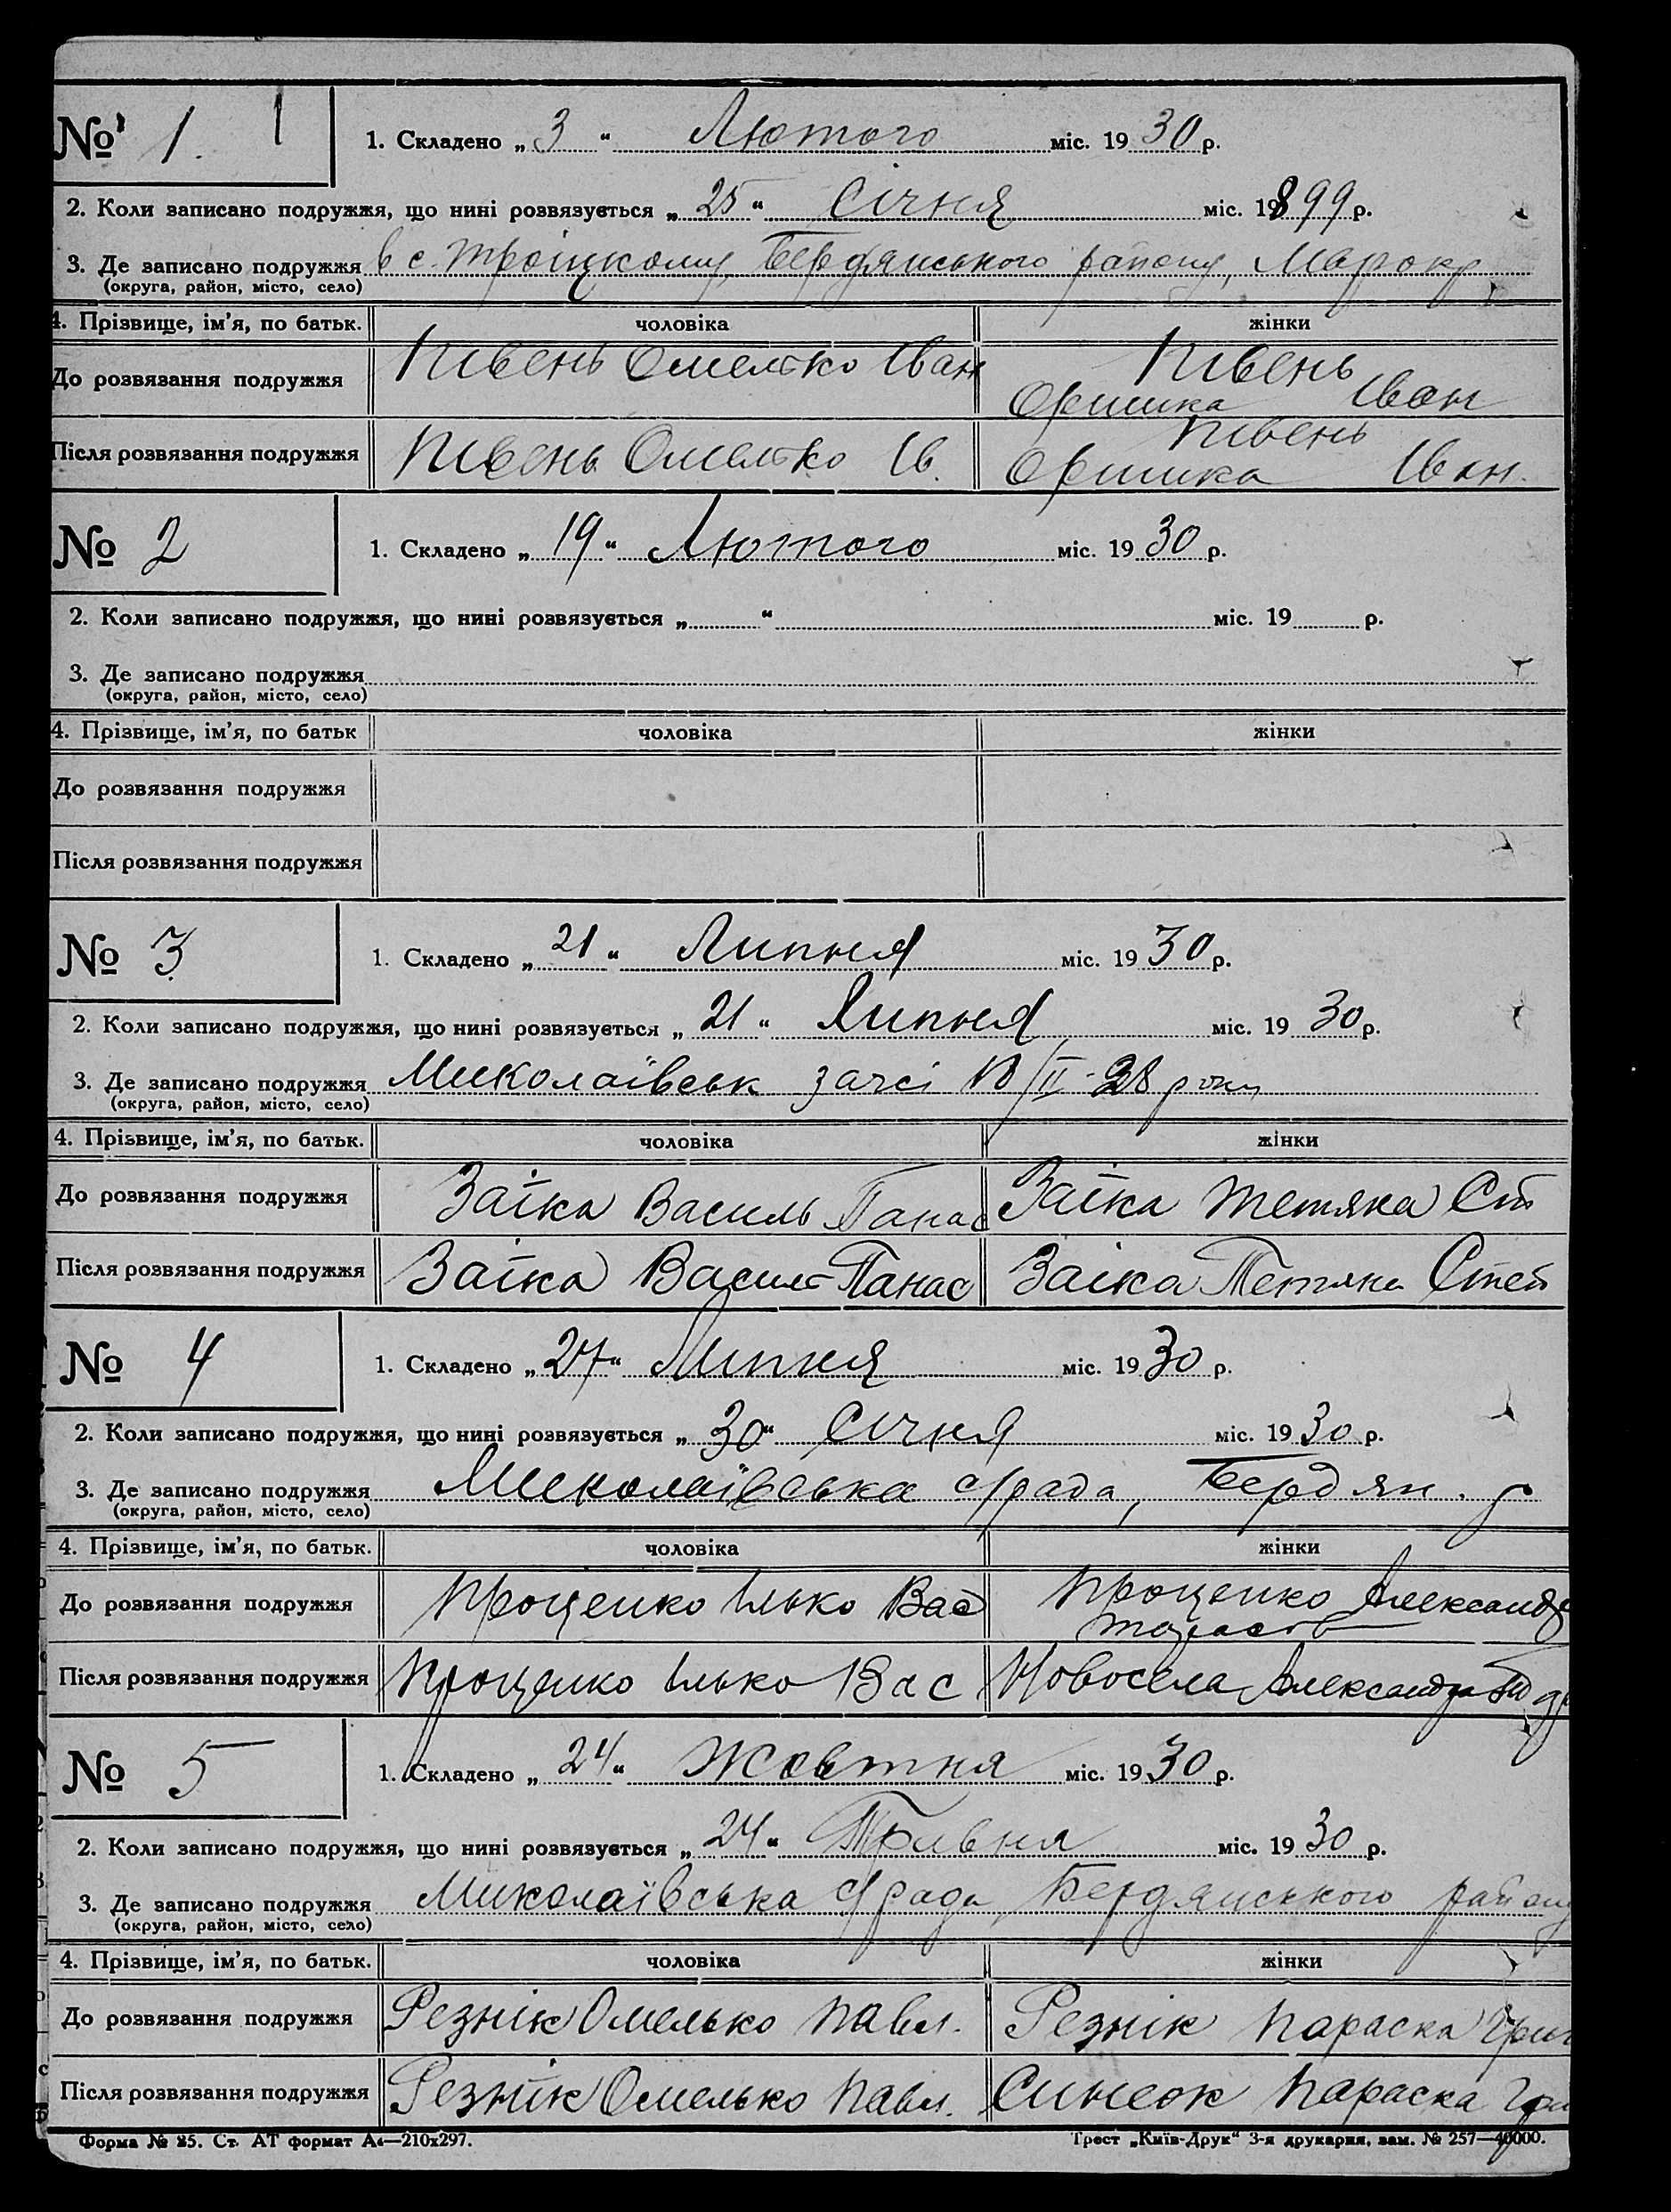 № 1. 1
1. Складено „ 3 “ Лютого міс. 19 30 р.
2. Коли записано подружжя, що нині розвязується „ 25 “ Січня міс. 1899 р.
3. Де записано подружжя в с. Троіцкому, Бердянського району,
(округа, район, місто, село)
4. Прізвище, ім’я, по батьк. чоловіка жінки
До розвязання подружжя Півень Омелько Іван Півень
Оришка Іван
Після розвязання подружжя Півень Омелько Ів. Півень
Оришка Іван.
№ 2
1. Складено „ 19 “ Лютого міс. 19 30 р.
2. Коли записано подружжя, що нині розвязується „ “ міс. 19 р.
3. Де записано подружжя
(округа, район, місто, село)
4. Прізвище, ім’я, по батьк чоловіка жінки
До розвязання подружжя
Після розвязання подружжя
№ 3
1. Складено „ 21 “ Липня міс. 19 30 р.
2. Коли записано подружжя, що нині розвязується „ 21 “ Липня міс. 19 30 р.
3. Де записано подружжя Миколаївськ загсі /II-28 року
(округа, район, місто, село)
4. Прізвище, ім’я, по батьк. чоловіка жінки
До розвязання подружжя Заїка Василь Панас Заїка Тетяна Ст
Після розвязання подружжя Заїка Василь Панас Заїка Тетяна Степ
№ 4
1. Складено „ 27 “ Липня міс. 19 30 р.
2. Коли записано подружжя, що нині розвязується „ 30 “ Січня міс. 19 30 р.
3. Де записано подружжя Миколаївська с/рада, Бердян. р
(округа, район, місто, село)
4. Прізвище, ім’я, по батьк. чоловіка жінки
До розвязання подружжя Проценко Ілько Вас Проценко Александр
Тарасов
Після розвязання подружжя Проценко Ілько Вас Новосела Александра
№ 5
1. Складено „ 24 “ Жовтня міс. 19 30 р.
2. Коли записано подружжя, що нині розвязується „ 24 “ Травня міс. 19 30 р.
3. Де записано подружжя Миколаївська с/рада, Бердянського району
(округа, район, місто, село)
4. Прізвище, ім’я, по батьк. чоловіка жінки
До розвязання подружжя Резнік Омелько Павл. Резнік Параска Григ
Після розвязання подружжя Резнік Омелько Павл. Синеок Параска Гри
Форма № 25. Ст. АТ формат А4—210х297. Трест „Київ-Друк“ 3-я друкарня, зам. № 257—40000.